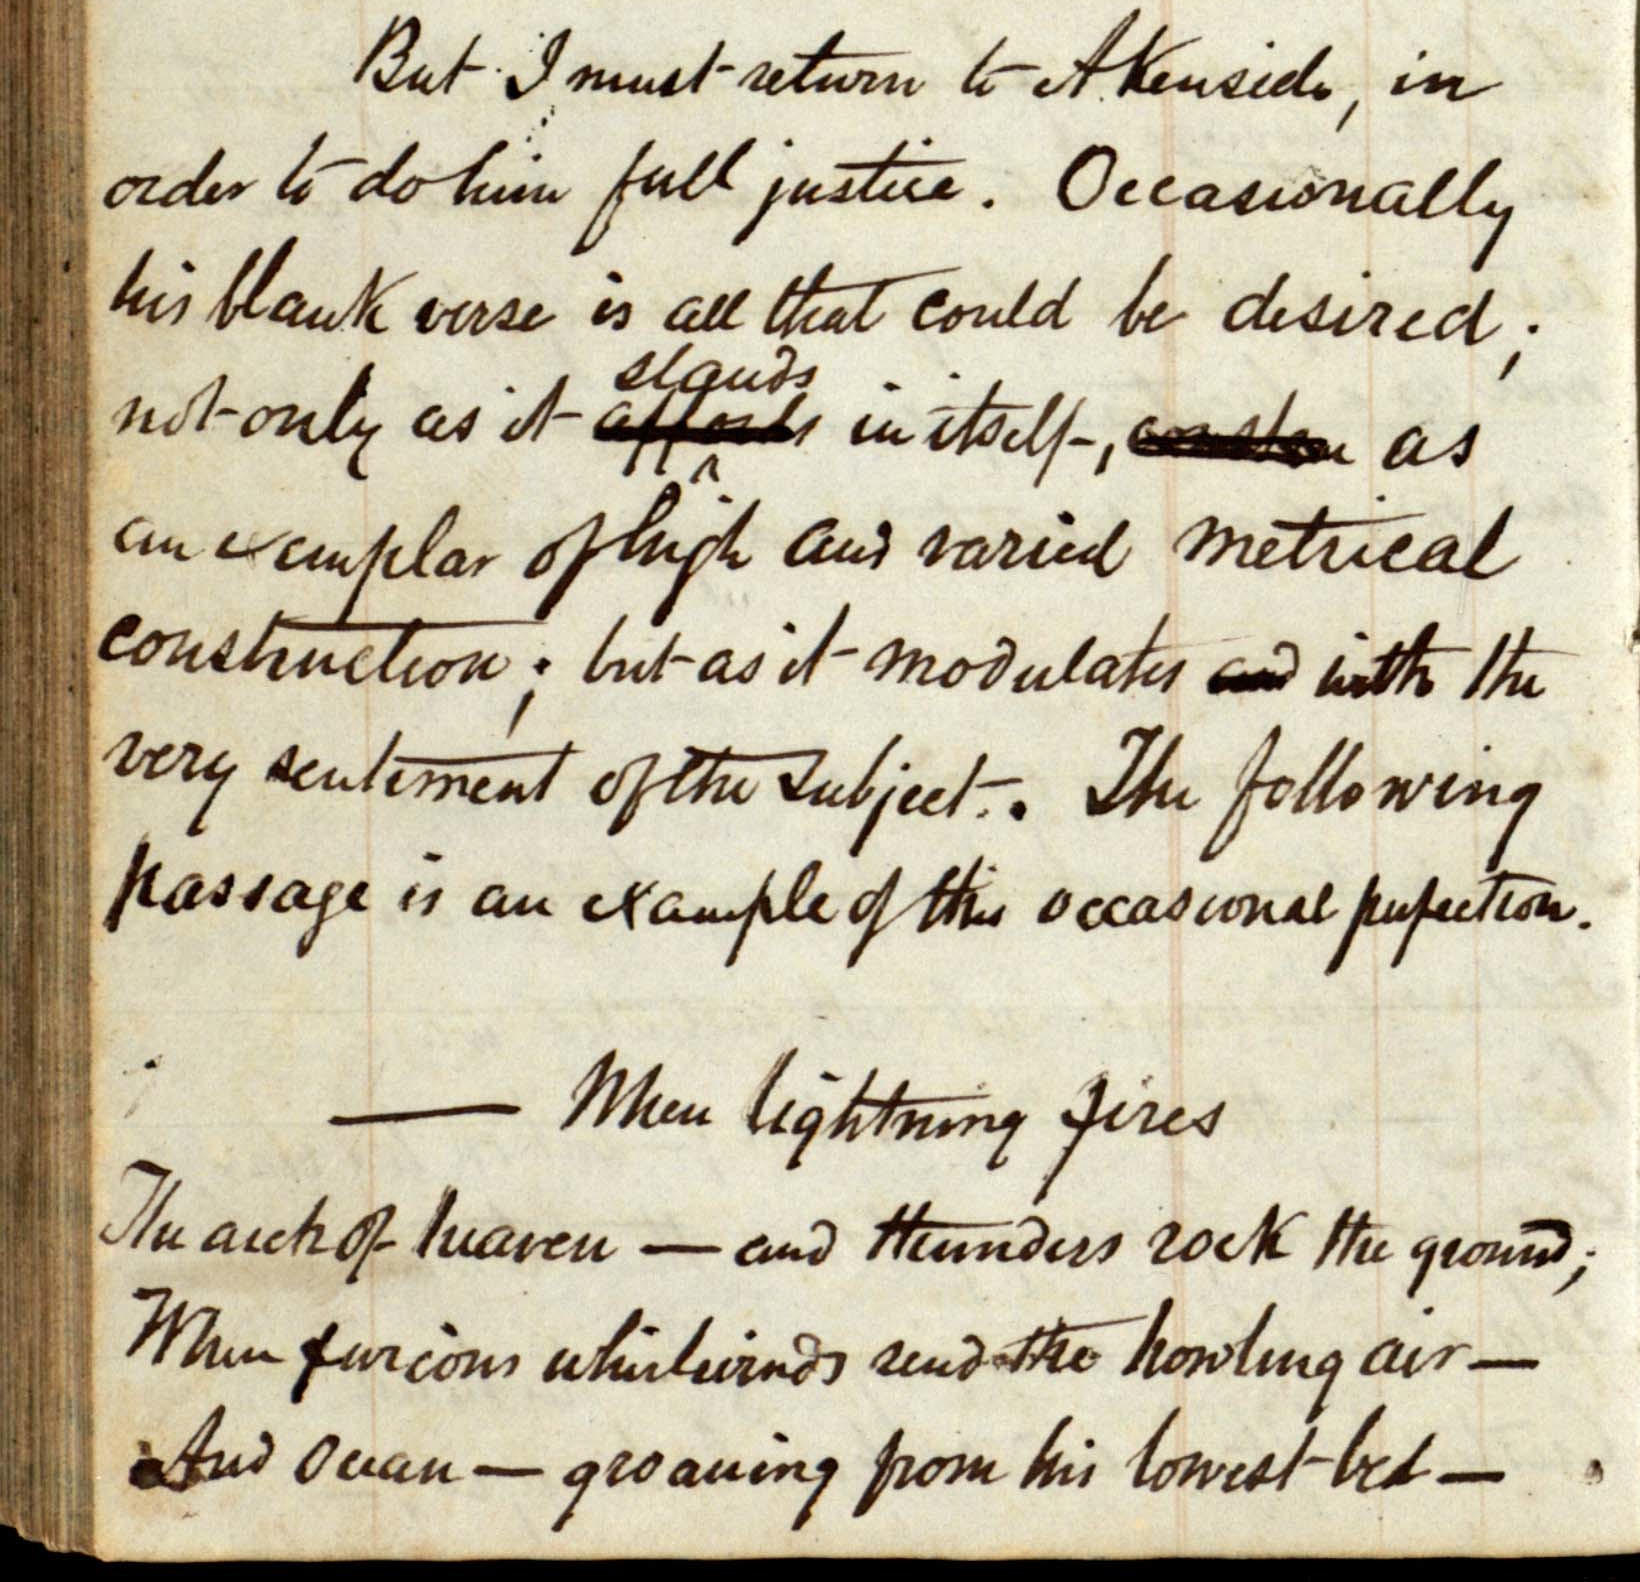 But I must return to Akenside, in
order to do him full justice. Occasionally
his blank verse is all that could be desired;
stands
not only as it affords in itself, as
an exemplar of high and varied metrical
construction; but as it modulates and with the
very sentiment of the subject. The following
passage is an example of this occasional perfection.
— When lightning fires
The arch of heaven — and thunders rock the ground;
When furious whirlwinds rend the howling air —
And Ocean — groaning from his lowest bed —